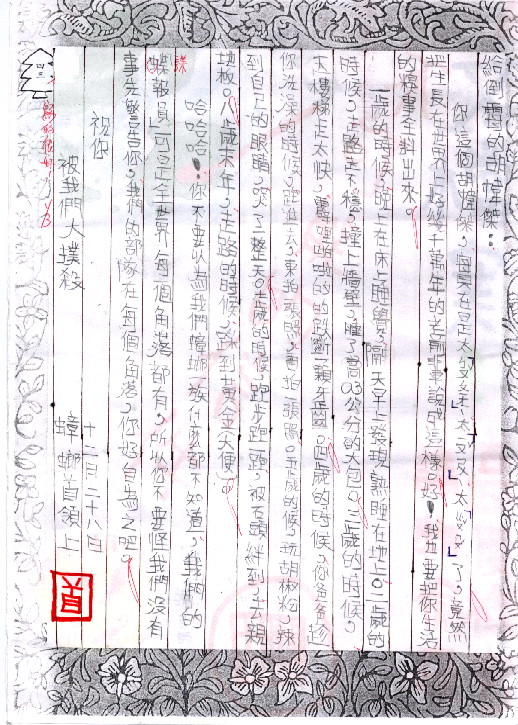 給倒霉的胡幃傑:
你這個胡幃傑，每天真是太「ㄆㄆ，太「ㄡㄡ」、太「ㄅㄅ」了，竟然
把生長在世界上好幾千萬年的老前輩說成這樣。好！我也要把你生活
的糗事全料出來。
一歲的時候，睡在床上睡覺，隔天早上發現熟睡在地上。二歲的
時候，走路走不穩，撞上牆壁，腫了高03公分的大包。三歲的時候，
下樓梯走太快，唏哩嘩啦的的跌斷一顆牙齒。四歲的時候，你爸爸趁
你洗澡的時候，跑進去，東拍一張照，西拍一張照。五歲的時候，玩胡椒粉，辣
到自己的眼睛，哭了一整天。七歲的時候，跑步跑到一頭，被石頭絆到，去親
地板。八歲本年，走路的時候，踩到黃金(大便)。
哈哈哈！你不要以為我們蟑螂一族什麼都不知道，我們的
諜
「蝶報員」可是全世界每一個角落都有，所以你不要怪我們沒有
事先警告你，我們的部隊在每個角落，你好自為之吧。
祝你
被我們大撲殺
蟑螂首領上
十二月二十八日
首